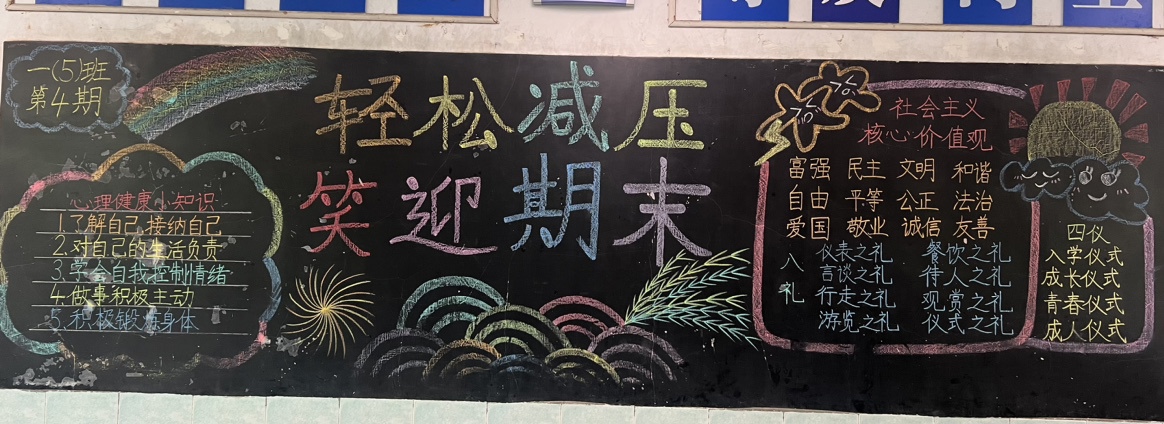 一(5)班
第4期
轻松减压
笑迎期末
心理健康小知识
1.了解自己,接纳自己
2.对自己的生活负责
3.学会自我控制情绪
4.做事积极主动
5.积极锻炼身体
社会主义
核心价值观
富强 民主 文明 和谐
自由 平等 公正 法治
爱国 敬业 诚信 友善
八礼
仪表之礼 餐饮之礼
言谈之礼 待人之礼
行走之礼 观赏之礼
游览之礼 仪式之礼
四仪
入学仪式
成长仪式
青春仪式
成人仪式